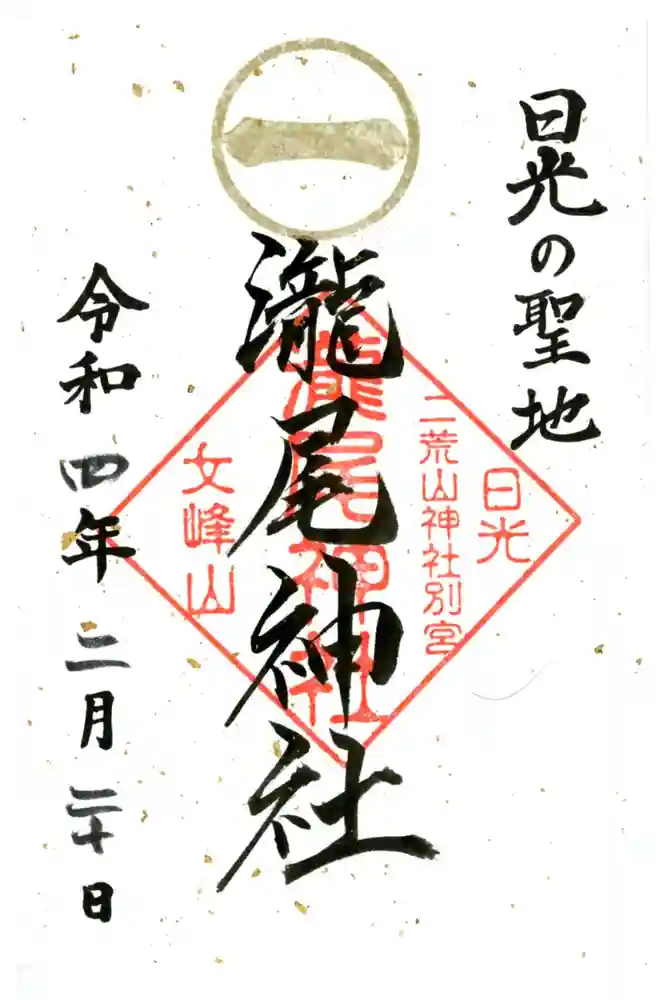 日光の聖地
一
瀧尾神社
日光
二荒山神社別宮
瀧尾神社
女峰山
令和四年二月二十日